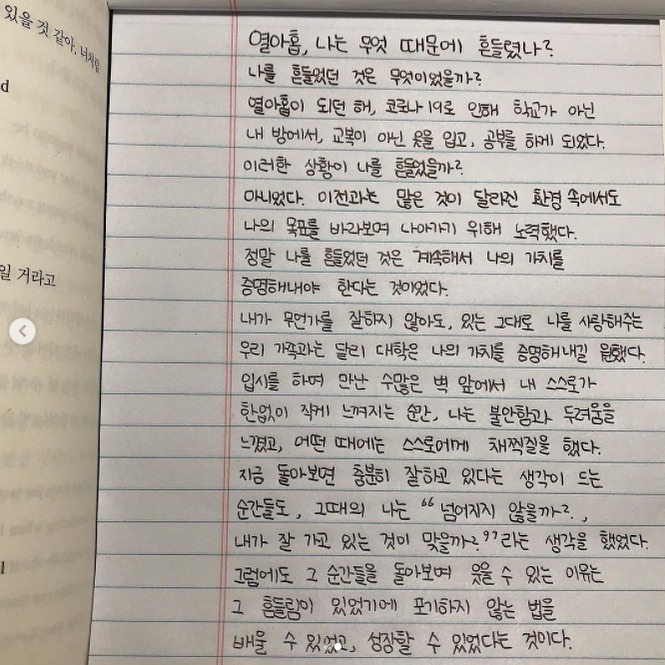 있을 것 같아, 너처럼
d
일 거라고
l
열아홉, 나는 무엇 때문에 흔들렸나?
나를 흔들었던 것은 무엇이었을까?
열아홉이 되던 해, 코로나19로 인해 학교가 아닌
내 방에서, 교복이 아닌 옷을 입고, 공부를 하게 되었다.
이러한 상황이 나를 흔들었을까?
아니었다. 이전과는 많은 것이 달라진 환경 속에서도
나의 목표를 바라보며 나아가기 위해 노력했다.
정말 나를 흔들었던 것은 계속해서 나의 가치를
증명해내야 한다는 것이었다.
내가 무언가를 잘하지 않아도, 있는 그대로 나를 사랑해주는
우리 가족과는 달리 대학은 나의 가치를 증명해내길 원했다.
입시를 하며 만난 수많은 벽 앞에서 내 스스로가
한없이 작게 느껴지는 순간, 나는 불안함과 두려움을
느꼈고, 어떤 때에는 스스로에게 채찍질을 했다.
지금 돌아보면 충분히 잘하고 있다는 생각이 드는
순간들도, 그때의 나는 “넘어지지 않을까?,
내가 잘 가고 있는 것이 맞을까?”라는 생각을 했었다.
그럼에도 그 순간들을 돌아보며 웃을 수 있는 이유는
그 흔들림이 있었기에 포기하지 않는 법을
배울 수 있었고, 성장할 수 있었다는 것이다.